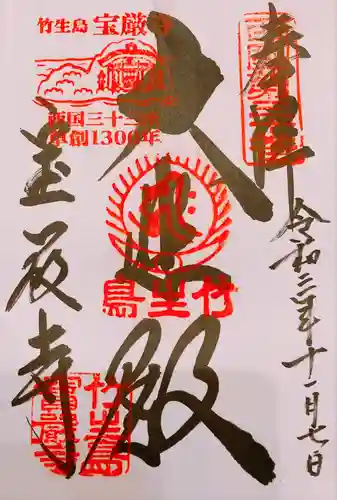 奉拝
令和三年十一月七日
大悲殿
宝厳寺
竹生島 宝厳寺
西国三十三所
草創1300年
竹生島
竹生島